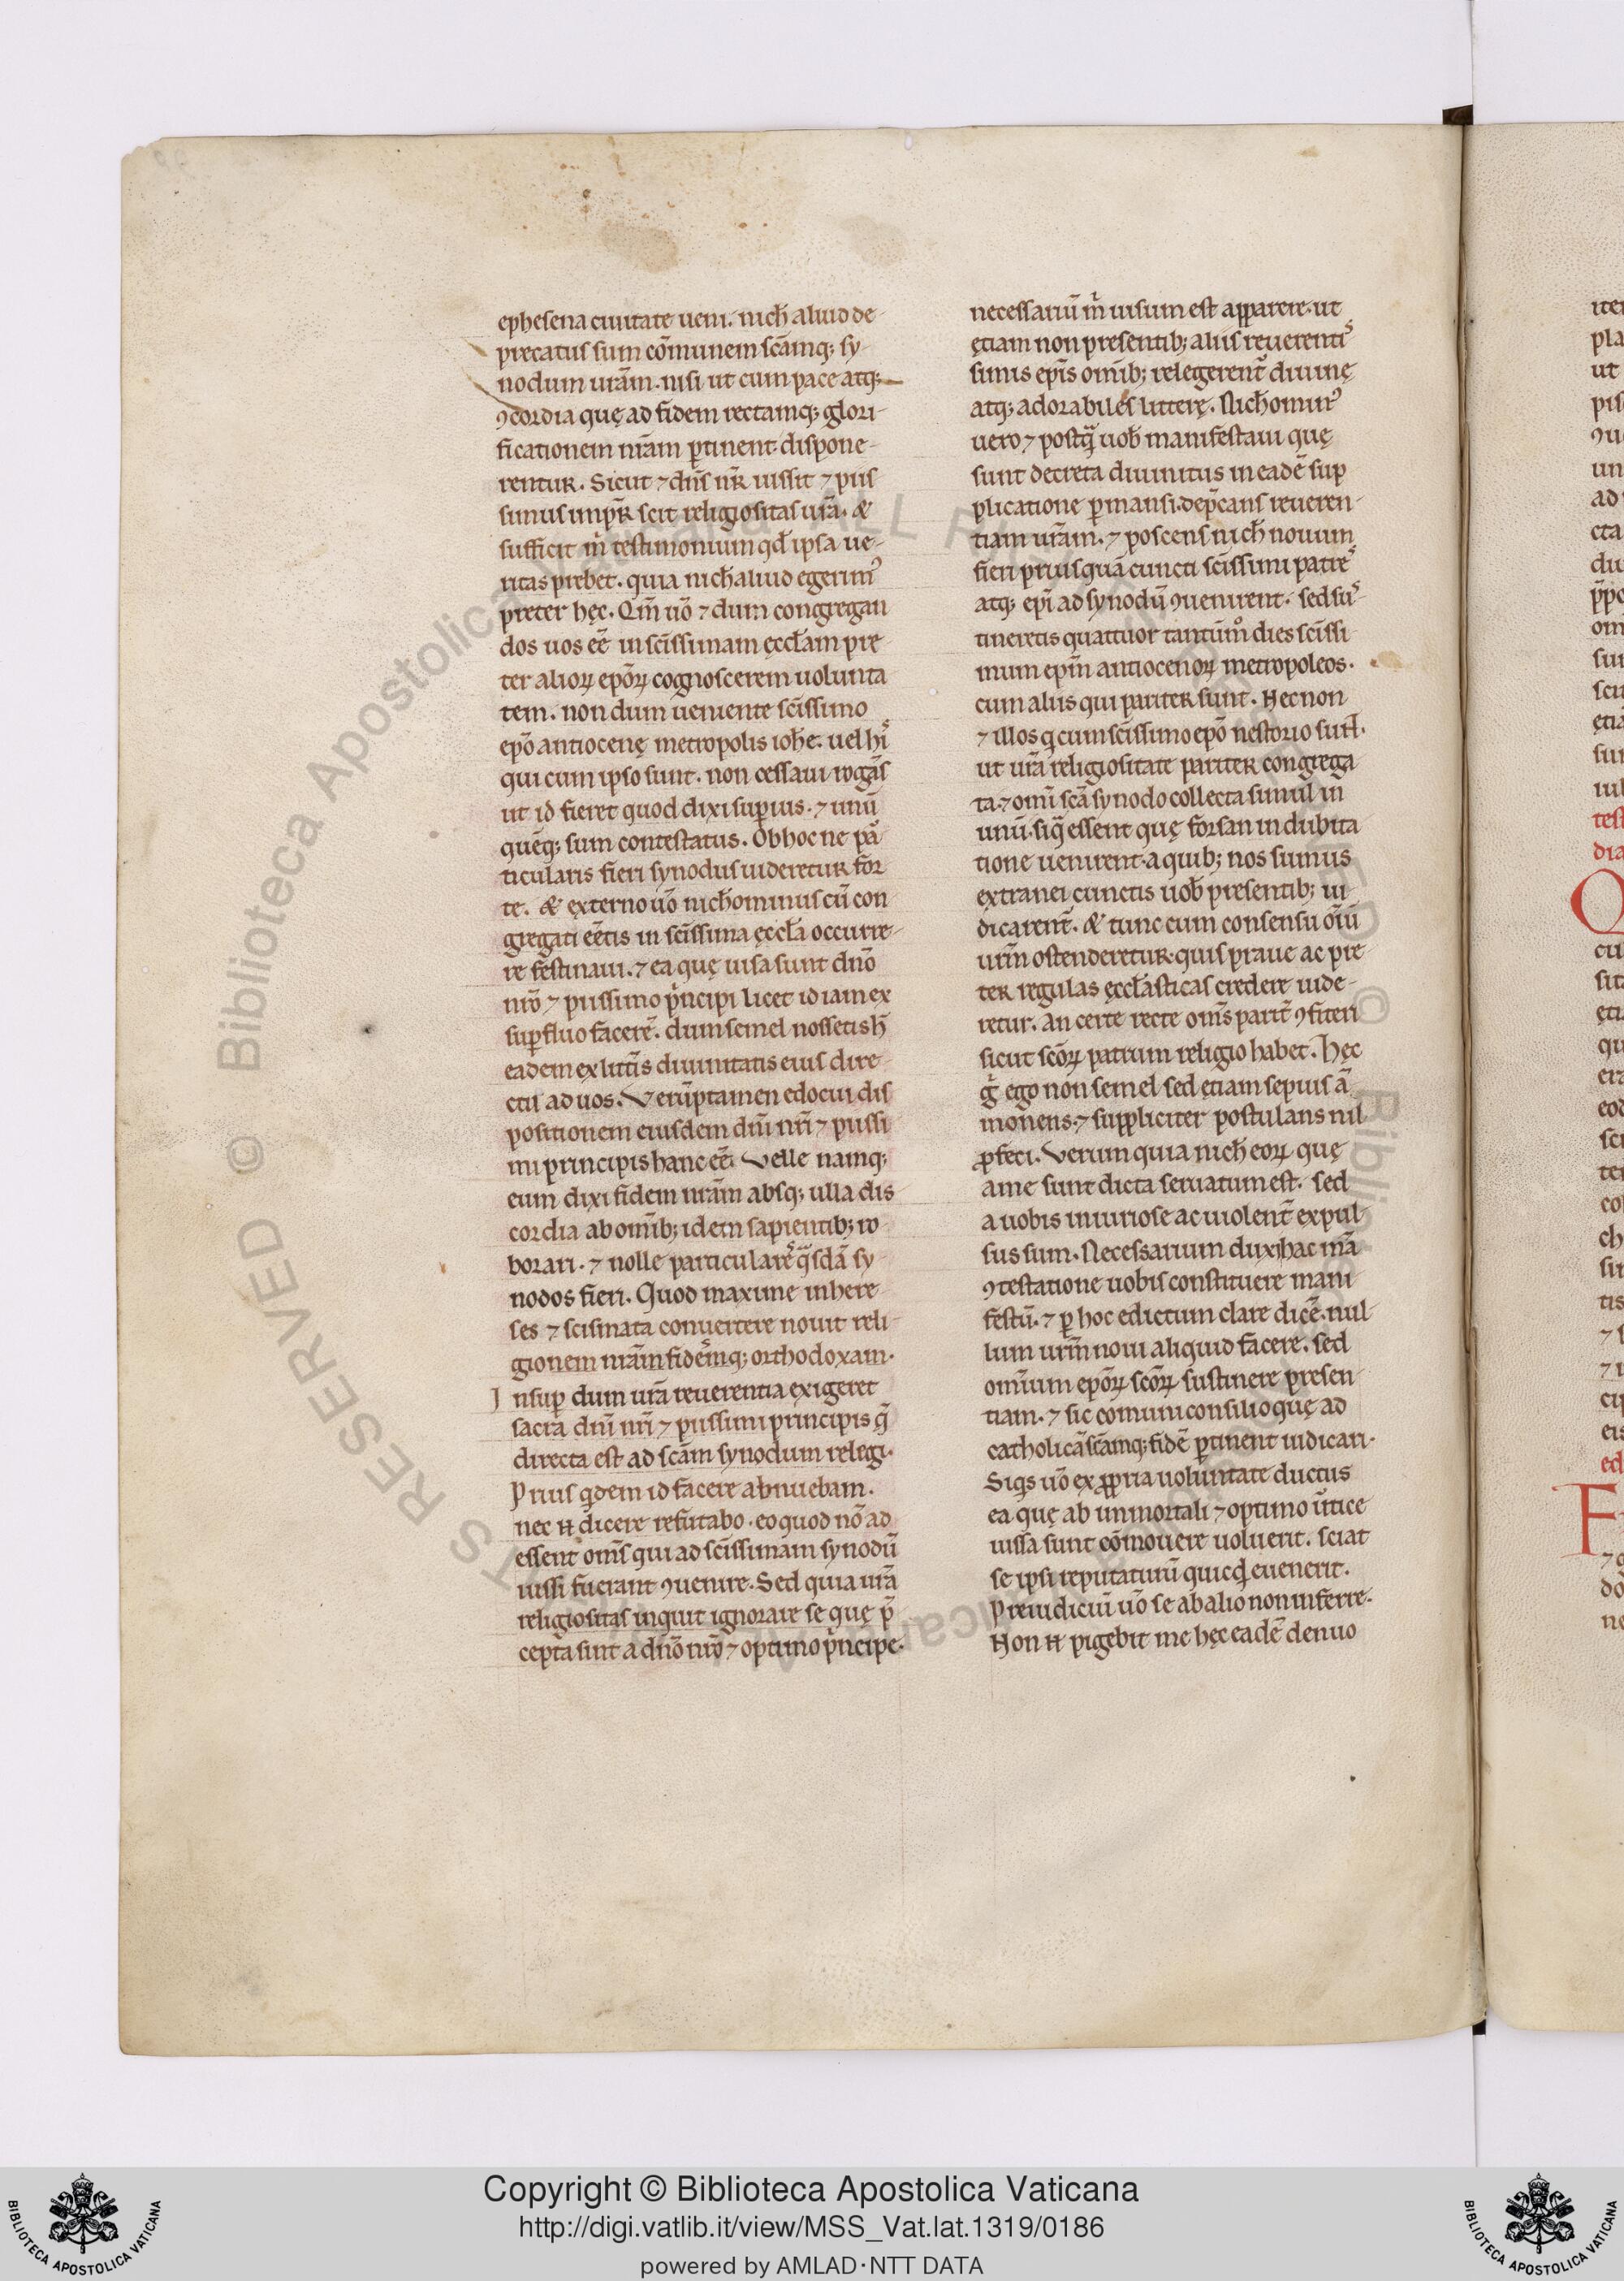 ephesena ciuitate ueni. nich̄ aliud de-
precatus sum cōmunem scāmq; sy-
nodum urām. nisi ut cum pace atq;
ꝯcordia quę ad fidem rectamq; glori-
ficationem nrām ꝑtinent dispone-
rentur. Sicut ⁊ dn̄s nr̄ iussit ⁊ piis
simus imꝑr̄ scit religiositas urā. &
sufficit m̄ testimonium qd̄ ipsa ue-
ritas prebet. quia nich̄ aliud egerim᾽
preter hęc. Qm̄ uō ⁊ dum congregan
dos uos eē in scīssimam ęccl̄am pre
ter alioꝝ epōꝝ cognoscerem uolunta
tem. non dum ueniente scīssimo
epō antiocenę metropolis ioh̄e. uel hi s
qui cum ipso sunt. non cessaui rogās
ut id fieret quod dixi suꝑius. ⁊ unū
quēq; sum contestatus. Ob hoc ne par
ticularis fieri synodus uideretur for
te. & externo uō nich̄ominus cū con
gregati eētis in scīssima ęccl̄a occurre-
re festinaui. ⁊ ea quę uisa sunt dnō
nrō ⁊ piissimo pⁱncipi licet id iam ex
suꝑfluo facerē. dum semel nossetis h̄
eadem ex litt̄is diuinitatis eius dire-
ctū ad uos. Verūptamen edocui dis
positionem eiusdem dnī nrī ⁊ piissi
mi principis hanc eē. Velle namq;
eum dixi fidem nrām absq; ulla dis
cordia ab omīb; idem sapientib; ro
borari. ⁊ nolle particulares qᵃsdā sy
nodos fieri. Quod maxime in here-
ses ⁊ scismata conuertere nouit reli-
gionem nrām fidemq; orthodoxam.
Insuꝑ dum urā reuerentia exigeret
sacra dnī nrī ⁊ piissimi principis q̄
directa est ad scām synodum relegi.
Prius qⁱdem id facere abnuebam.
nec n̄ dicere refutabo. eo quod nō ad
essent oms̄ qui ad scīssimam synodū
iussi fuerant ꝯuenire. Sed quia urā
religiositas inquit ignorare se quę p̄
cepta sint a dnō nrō ⁊ optimo pⁱncipe.
necessariū mⁱ uisum est apparere. ut
ętiam non presentib; aliis reuerentis
simis epīs omīb; relegerent᾽ diuinę
atq; adorabiles litterę. Nich̄omin᾽
uero ⁊ postqᵃ uob̄ manifestaui quę
sunt decreta diuinitus in eadē sup
plicatione ꝑmansi. dep̄cans reueren-
tiam urām. ⁊ poscens nich̄ nouum
fieri priusquā cuncti scīssimi patres
atq; epī ad synodū ꝯuenirent. sed sus-
tineretis quattuor tantūm᾽ dies scīssi
mum epm̄ antiocenoꝝ metropoleos.
cum aliis qui pariter sunt. Hec non
⁊ illos qⁱ cum scīssimo epō nestorio sunt.
ut urā religiositate pariter congrega
ta. ⁊ omī scā synodo collecta simul in
unū. siqᵃ essent quę forsan in dubita
tione uenirent. a quib; nos sumus
extranei cunctis uob̄ presentib; iu
dicarent̄. & tunc cum consensu oīū
urm̄ ostenderetur. quis praue ac pre
ter regulas ęccl̄asticas credere uide-
retur. An certe recte oms̄ parit̄ ꝯfiteri
sicut scōꝝ patrum religio habet. Hęc
gⁱ ego non semel sed etiam sepius ā
monens. ⁊ suppliciter postulans nil
ꝓfeci. Verum quia nich̄ eoꝝ quę
a me sunt dicta seruatum est. sed
a uobis iniuriose ac uiolent̄ expul-
sus sum. Necessarium duxi hac mā
ꝯtestatione uobis constituere mani
festū. ⁊ ꝑ hoc edictum clare dicē. nul-
lum urm̄ noui aliquid facere. sed
omīum epōꝝ scōꝝ sustinere presen-
tiam. ⁊ sic comuni consilio quę ad
catholicā scāmq; fidē ꝑtinent iudicari.
Siqⁱs uō ex ꝓpria uoluntate ductus
ea quę ab inmortali ⁊ optimo ūtice
iussa sunt cōmouere uoluerit. sciat
se ipsi reputaturū quicqd̄ euenerit.
Preiudiciū uō se ab alio non inferre.
Non n̄ pigebit me hęc eadē denuo
Copyright © Biblioteca Apostolica Vaticana
http://digi.vatlib.it/view/MSS_Vat.lat.1319/0186
powered by AMLAD·NTT DATA